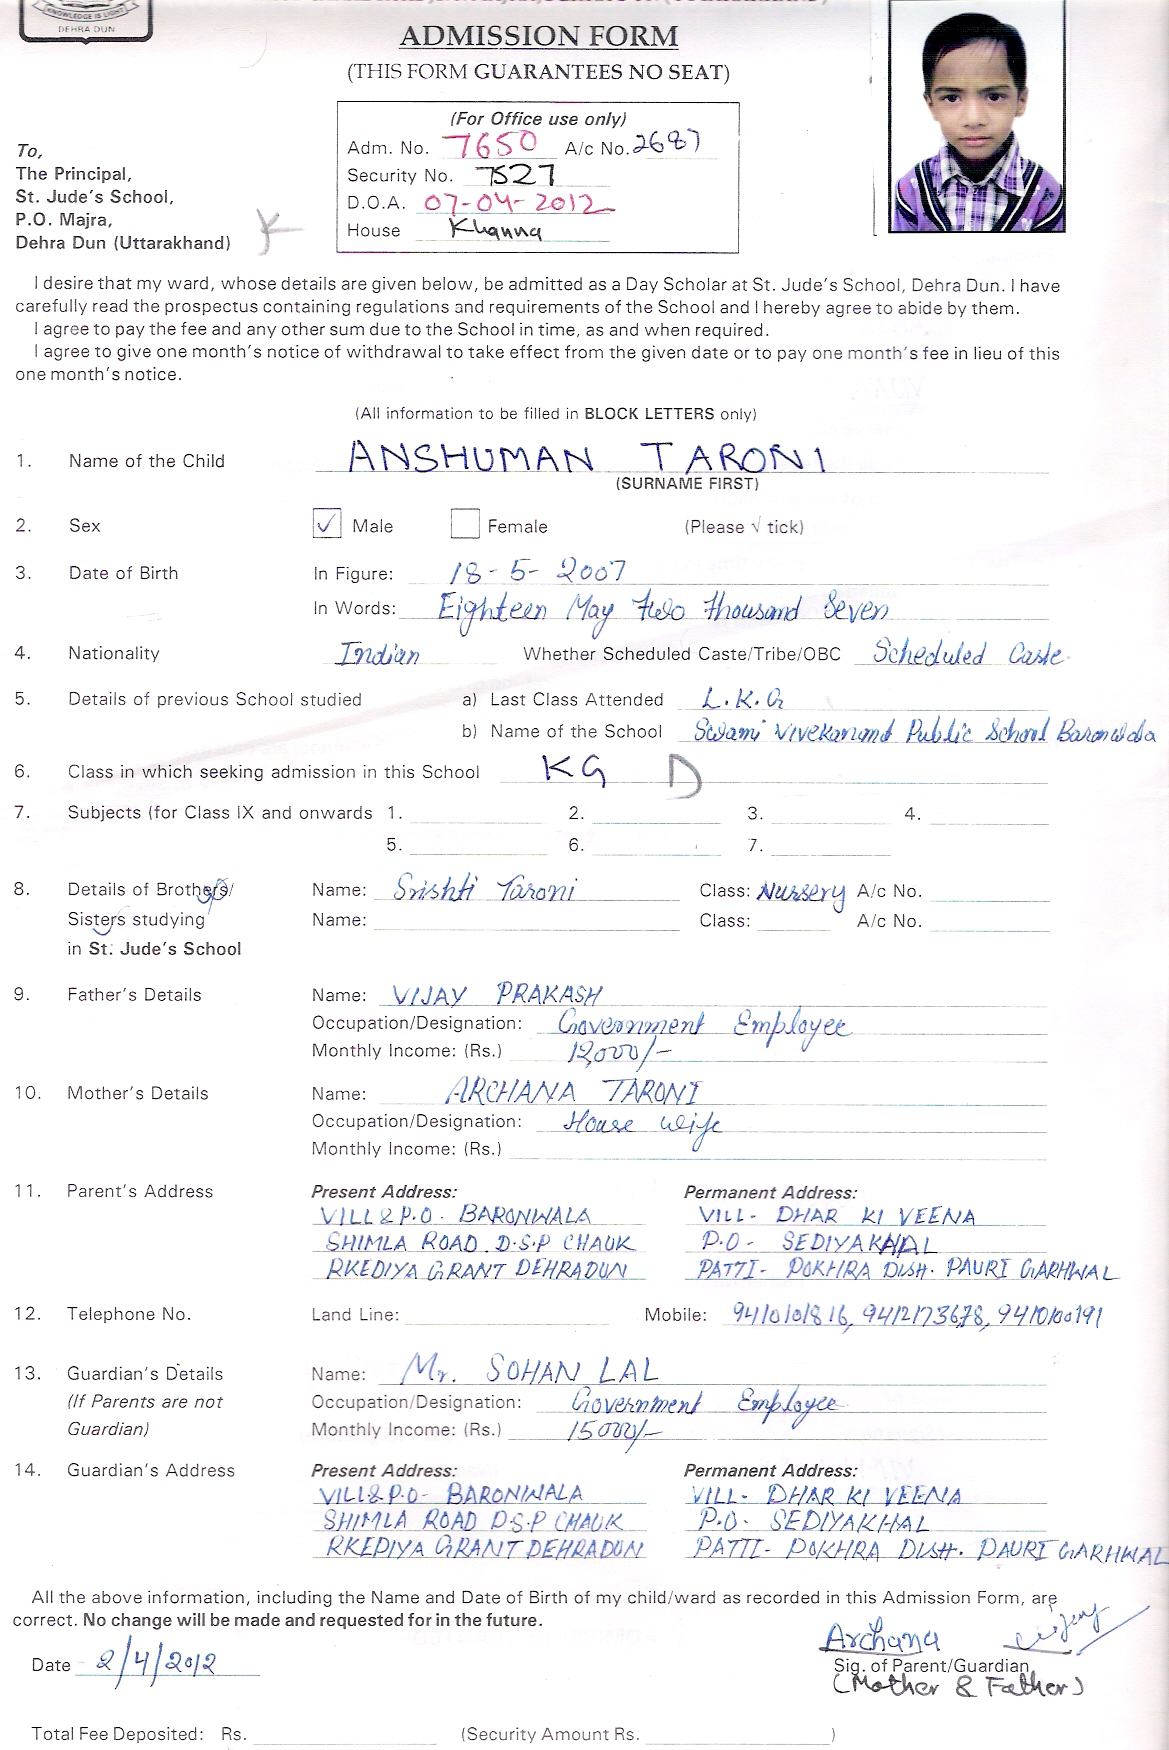 KNOWLEDGE IS LIGHT
DEHRA DUN
ADMISSION FORM
(THIS FORM GUARANTEES NO SEAT)
(For Office use only)
Adm. No. 7650 A/c No. 2687
Security No. 7527
D.O.A. 07-04-2012
House Khanna
To,
The Principal,
St. Jude's School,
P.O. Majra,
Dehra Dun (Uttarakhand)
I desire that my ward, whose details are given below, be admitted as a Day Scholar at St. Jude's School, Dehra Dun. I have
carefully read the prospectus containing regulations and requirements of the School and I hereby agree to abide by them.
I agree to pay the fee and any other sum due to the School in time, as and when required.
I agree to give one month's notice of withdrawal to take effect from the given date or to pay one month's fee in lieu of this
one month's notice.
(All information to be filled in BLOCK LETTERS only)
1. Name of the Child ANSHUMAN TARONI
(SURNAME FIRST)
2. Sex ✓ Male Female (Please √ tick)
3. Date of Birth In Figure: 18-5-2007
In Words: Eighteen May Two Thousand Seven
4. Nationality Indian Whether Scheduled Caste/Tribe/OBC Scheduled Caste
5. Details of previous School studied a) Last Class Attended L.K.G
b) Name of the School Swami Vivekanand Public School Baronwala
6. Class in which seeking admission in this School KG D
7. Subjects (for Class IX and onwards 1. 2. 3. 4.
5. 6. 7.
8. Details of Brothers/ Name: Srishti Taroni Class: Nursery A/c No.
Sisters studying Name: Class: A/c No.
in St. Jude's School
9. Father's Details Name: VIJAY PRAKASH
Occupation/Designation: Government Employee
Monthly Income: (Rs.) 12,000/-
10. Mother's Details Name: ARCHANA TARONI
Occupation/Designation: House Wife
Monthly Income: (Rs.)
11. Parent's Address Present Address: Permanent Address:
VILL & P.O. BARONWALA VILL- DHAR KI VEENA
SHIMLA ROAD D.S.P CHAUK P.O- SEDIYAKHAL
RKEDIYA GRANT DEHRADUN PATTI- POKHRA Distt. PAURI GARHWAL
12. Telephone No. Land Line: Mobile: 9410101816, 9412173678, 9410100191
13. Guardian's Details Name: Mr. SOHAN LAL
(If Parents are not Occupation/Designation: Government Employee
Guardian) Monthly Income: (Rs.) 15000/-
14. Guardian's Address Present Address: Permanent Address:
VILL & P.O- BARONWALA VILL- DHAR KI VEENA
SHIMLA ROAD D.S.P CHAUK P.O- SEDIYAKHAL
RKEDIYA GRANT DEHRADUN PATTI- POKHRA Distt. PAURI GARHWAL
All the above information, including the Name and Date of Birth of my child/ward as recorded in this Admission Form, are
correct. No change will be made and requested for in the future.
Archana
Date 2/4/2012 Sig. of Parent/Guardian
(Mother & Father)
Total Fee Deposited: Rs. (Security Amount Rs. )